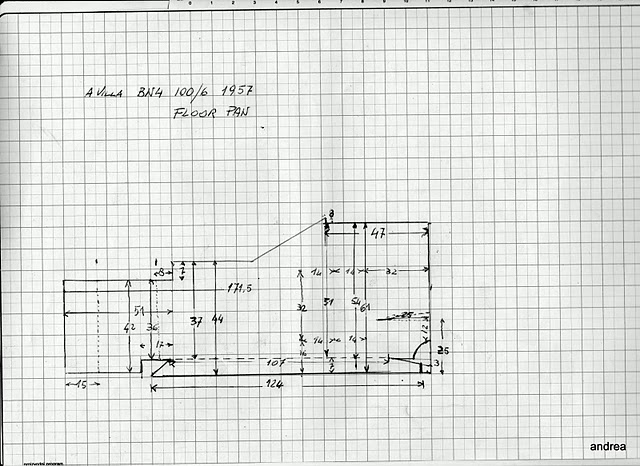 A VILLA BN4 100/6 1957
FLOOR PAN
8
47
8 7
14 14 32
171,5
51
42 36 37 44 32 51 54 61
25
12
17
14 14
16
25
107
3
15
124
andrea